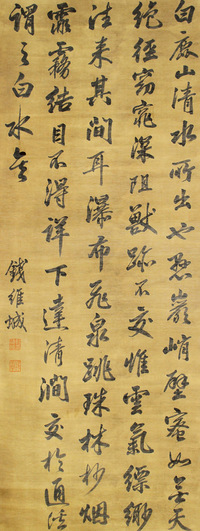 白鹿山清水所出也懸巖峭壁如無天
絕徑窈窕深阻獸跡不交惟雲氣縹緲
往來其間耳瀑布飛泉跳珠林杪烟
霏霧結目不得詳下達清澗交於通
謂之白水矣
錢維城